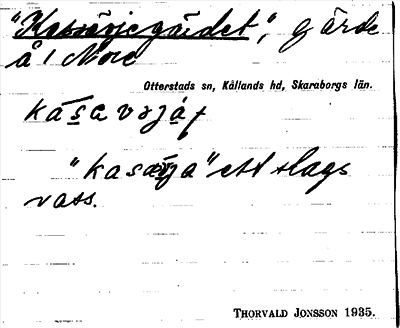 "Kasavjegärdet", gärde
å 1 Nore
Otterstads sn, Kållands hd, Skaraborgs län.
"kasavja" ett slags
vass.
THORVALD JONSSON 1935.